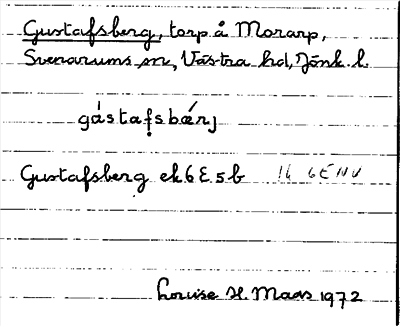 Gustafsberg, torp å Morarp,
Svenarums sn, Västra hd, Jönk. l.
gástafṣbǽrj
Gustafsberg ek 6 E 5 b 16 6E NV
Louise H. Maas 1972